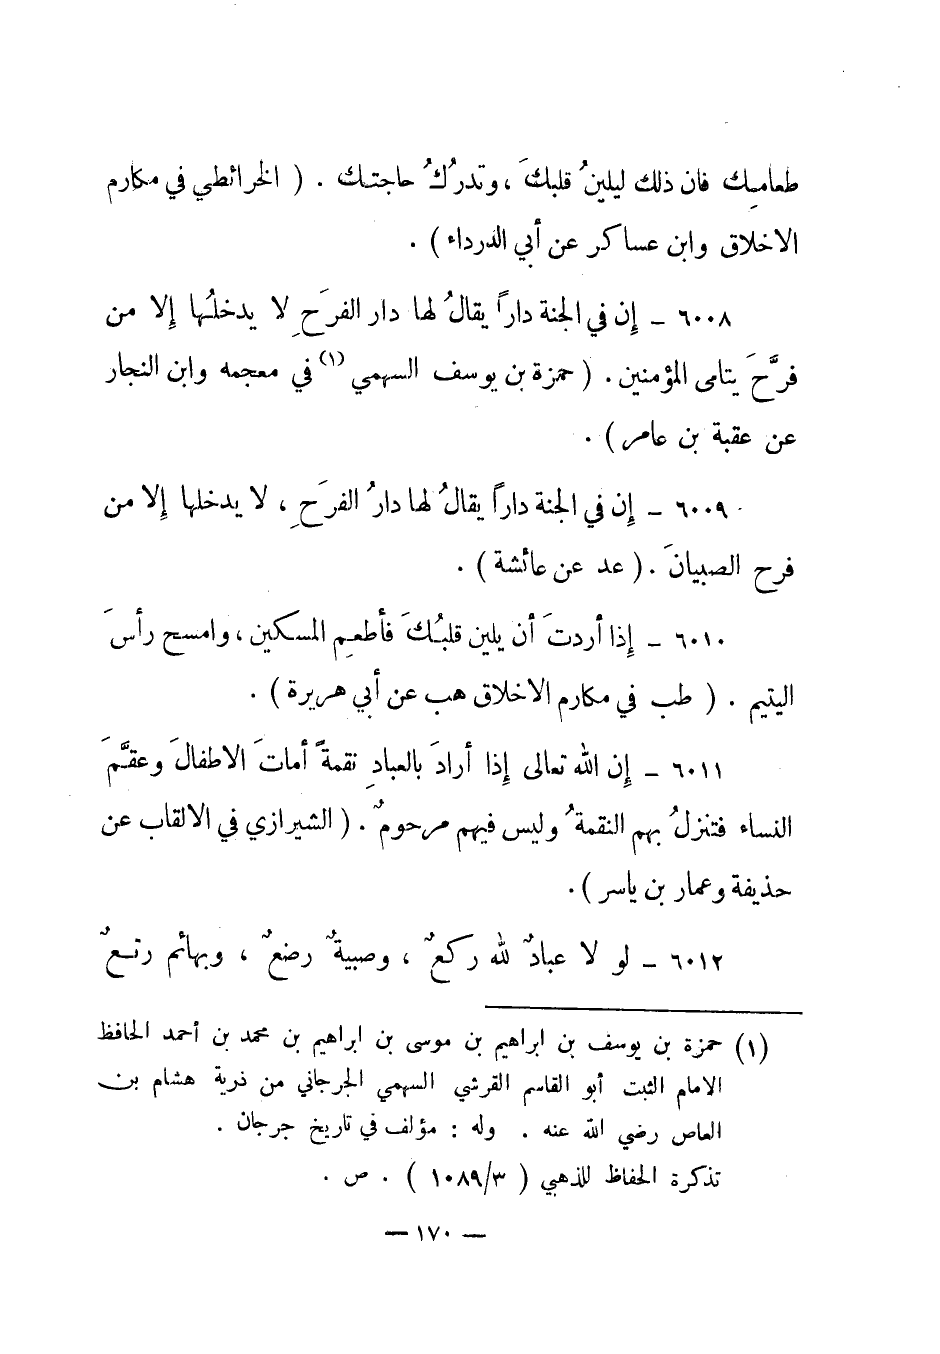 طعامِك فان ذلك ليلينُ قلبكَ ، وتدركُ حاجتك . ( الخرائطي في مكارم
الاخلاق وابن عساكر عن أبي الدرداء ) .
٦٠٠٨ ـ إن في الجنة داراً يقالُ لها دار الفرَحِ لا يدخلُها إلا من
فرَّحَ يتامى المؤمنين . ( حمزة بن يوسف السهمي (١) في معجمه وابن النجار
عن عقبة بن عامر ) .
٦٠٠٩ ـ إن في الجنة داراً يقالُ لها دارُ الفرَحِ ، لا يدخلها إلا من
فرح الصبيانَ . ( عد عن عائشة ) .
٦٠١٠ ـ إذا أردتَ أن يلين قلبُكَ فأطعمِ المسكين ، وامسح رأسَ
اليتيم . ( طب في مكارم الاخلاق هب عن أبي هريرة ) .
٦٠١١ ـ إن الله تعالى إذا أرادَ بالعبادِ نقمةً أماتَ الاطفالَ وعقَّمَ
النساء فتنزلُ بهم النقمةُ وليس فيهم مرحومٌ . ( الشيرازي في الالقاب عن
حذيفة وعمار بن ياسر ) .
٦٠١٢ ـ لو لا عبادٌ لله ركعٌ ، وصبيةٌ رضعٌ ، وبهائم رتعٌ
(١) حمزة بن يوسف بن ابراهيم بن موسى بن ابراهيم بن محمد بن أحمد الحافظ
الامام الثبت أبو القاسم القرشي السهمي الجرجاني من ذرية هشام بن
العاص رضي الله عنه . وله : مؤلف في تاريخ جرجان .
تذكرة الحفاظ للذهبي ( ٣/ ١٠٨٩ ) . ص .
— ١٧٠ —